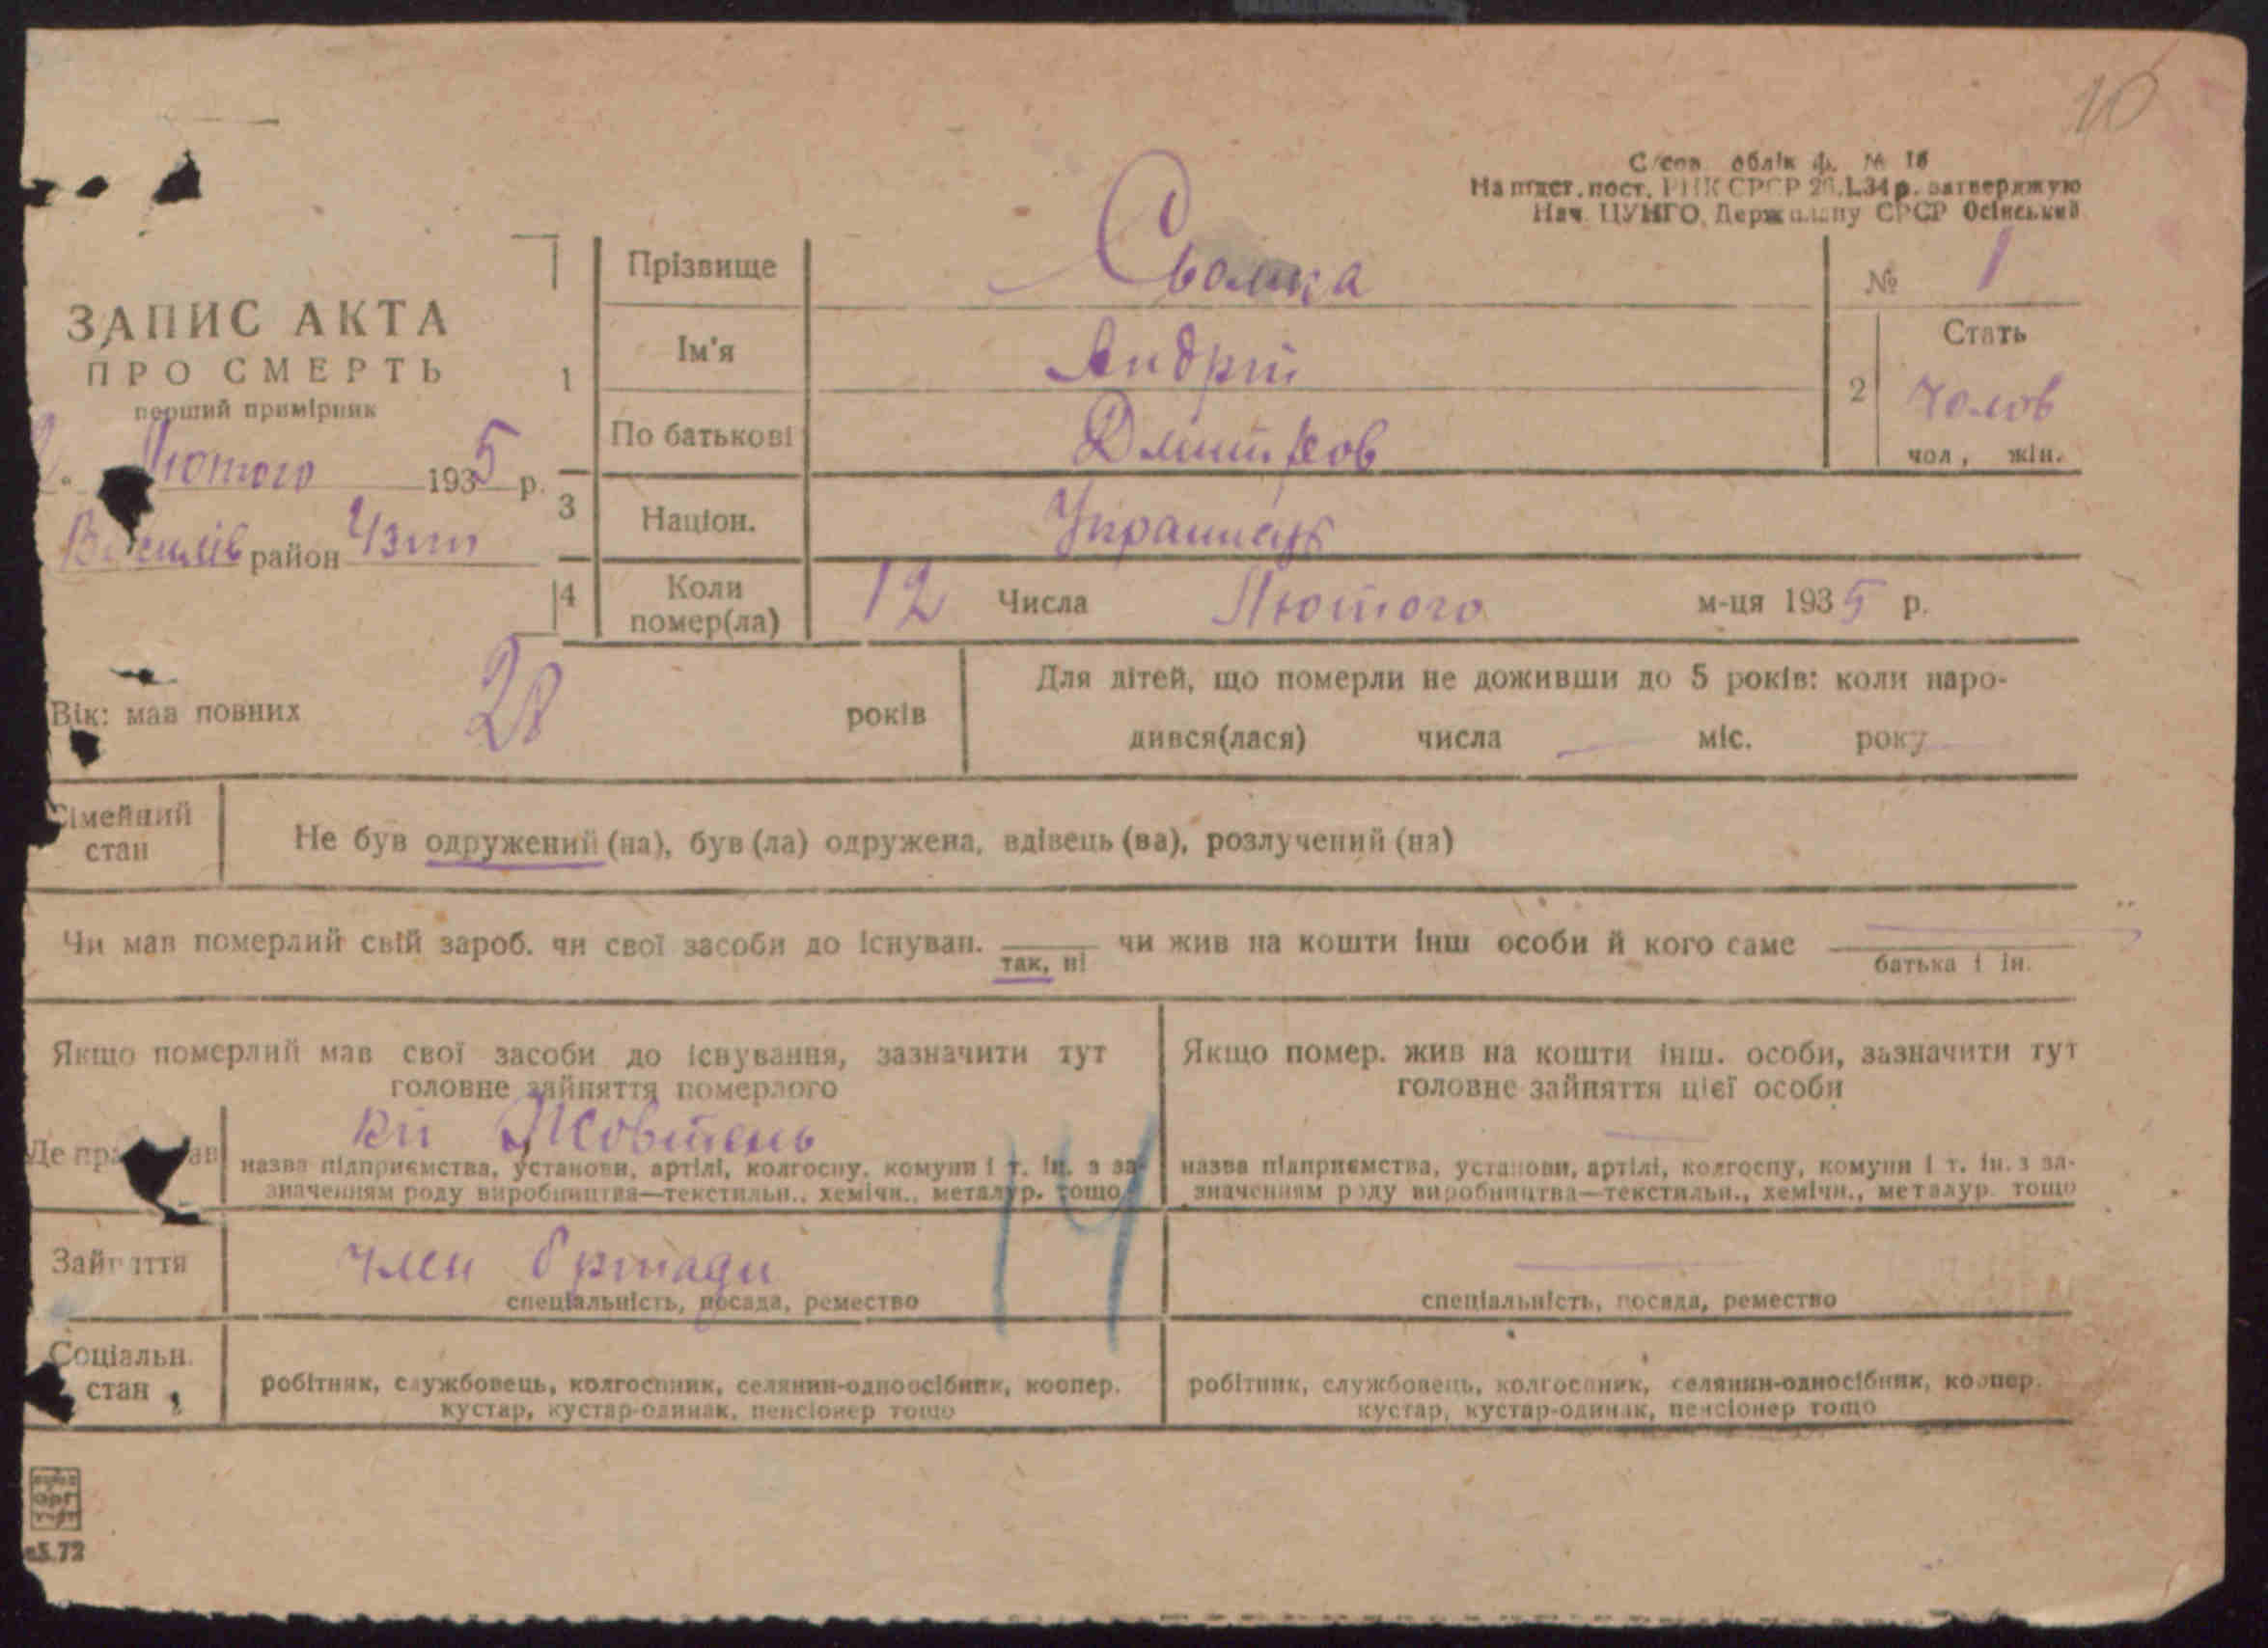 10
С/сов. облік ф. № 16
На підст. пост. РНК СРСР 26.І.34 р. затверджую
Нач. ЦУНГО Держплану СРСР Осінський
ЗАПИС АКТА
ПРО СМЕРТЬ
перший примірник
Лютого 1935 р.
район
1
Прізвище
№ 1
Ім'я Андрій
По батькові
2 Стать
Чолов
чол, жін.
3 Націон.
4 Коли помер(ла) 12 Числа Лютого м-ця 1935 р.
Вік: мав повних 28 років
Для дітей, що померли не доживши до 5 років: коли наро-
дився(лася) числа — міс. року
Сімейний стан
Не був одружений (на), був (ла) одружена, вдівець (ва), розлучений (на)
Чи мав померлий свій зароб. чи свої засоби до існуван. чи жив на кошти інш особи й кого саме
так, ні
батька і ін.
Якщо померлий мав свої засоби до існування, зазначити тут
головне зайняття померлого
Якщо помер. жив на кошти інш. особи, зазначити тут
головне зайняття цієї особи
Жовтень
назва підприємства, установи, артілі, колгоспу, комуни і т. ін. з за-
значенням роду виробництва—текстильн., хемічн., металур. тощо
назва підприємства, установи, артілі, колгоспу, комуни і т. ін. з за-
значенням роду виробництва—текстильн., хемічн., металур. тощо
14
Зайняття
член бригади
спеціальність, посада, ремество
спеціальність, посада, ремество
Соціальн.
стан
робітник, службовець, колгоспник, селянин-одноосібник, коопер.
кустар, кустар-одинак, пенсіонер тощо
робітник, службовець, колгоспник, селянин-односібник, коопер.
кустар, кустар-одинак, пенсіонер тощо